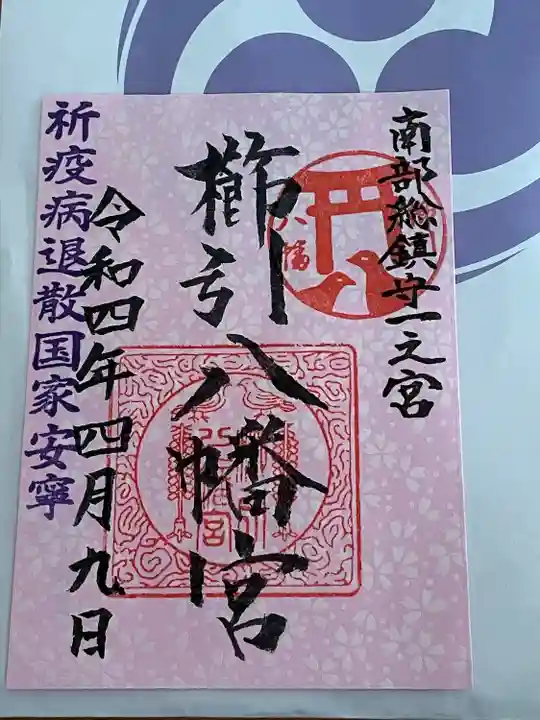 南部総鎮守一之宮
櫛引八幡宮
令和四年四月九日
祈疫病退散国家安寧
八幡